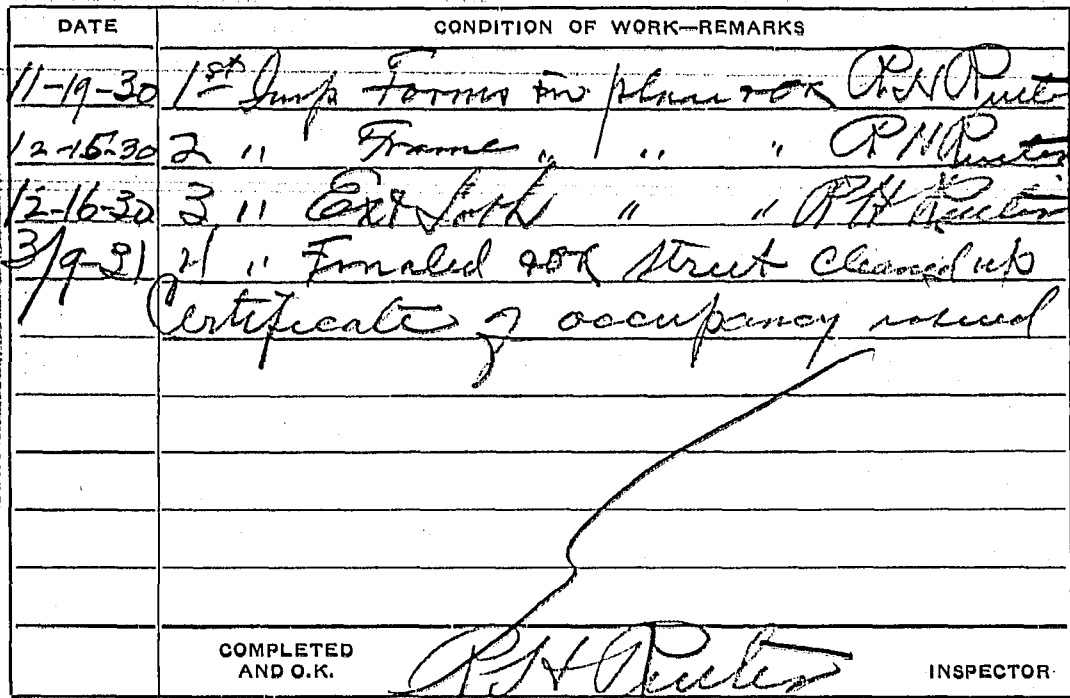 DATE CONDITION OF WORK—REMARKS
11-19-30 1st Insp Forms in place + OK R H
12-15-30 2 " Frame " " " R H
12-16-30 3 " Ext Lath " " R H
3/9-31 4 " Finaled + OK Street Cleaned up
Certificate of occupancy issued
COMPLETED AND O.K. R H INSPECTOR